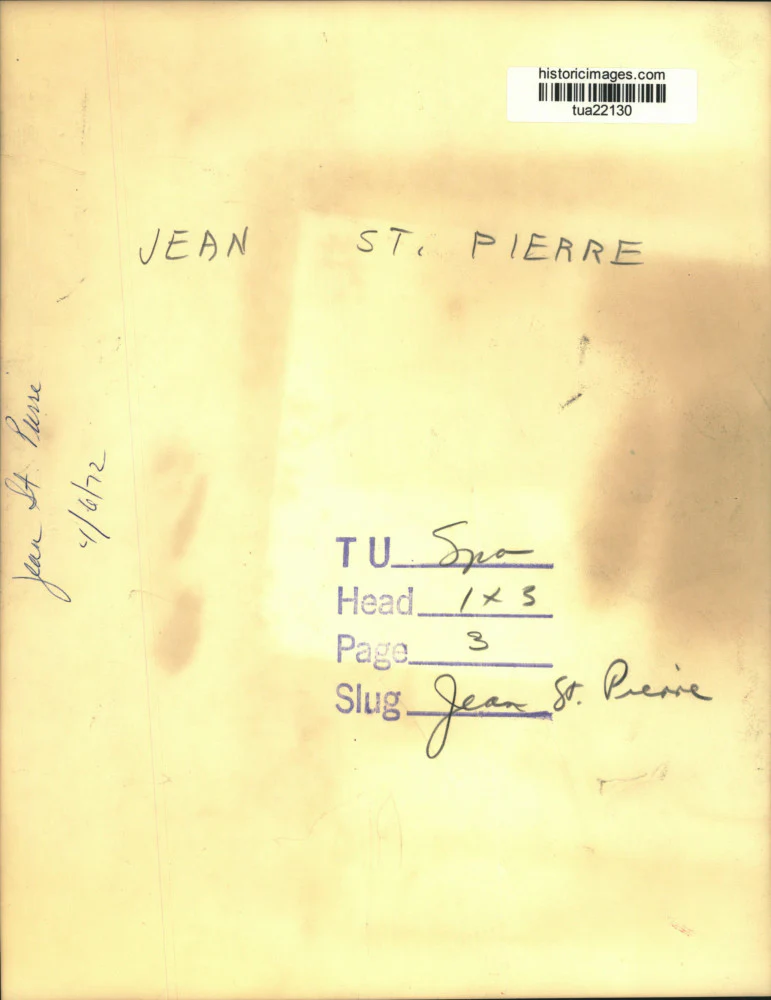 historicimages.com
tua22130
JEAN ST. PIERRE
Jean St. Pierre
4/6/72
TU Spo
Head 1 x 3
Page 3
Slug Jean St. Pierre